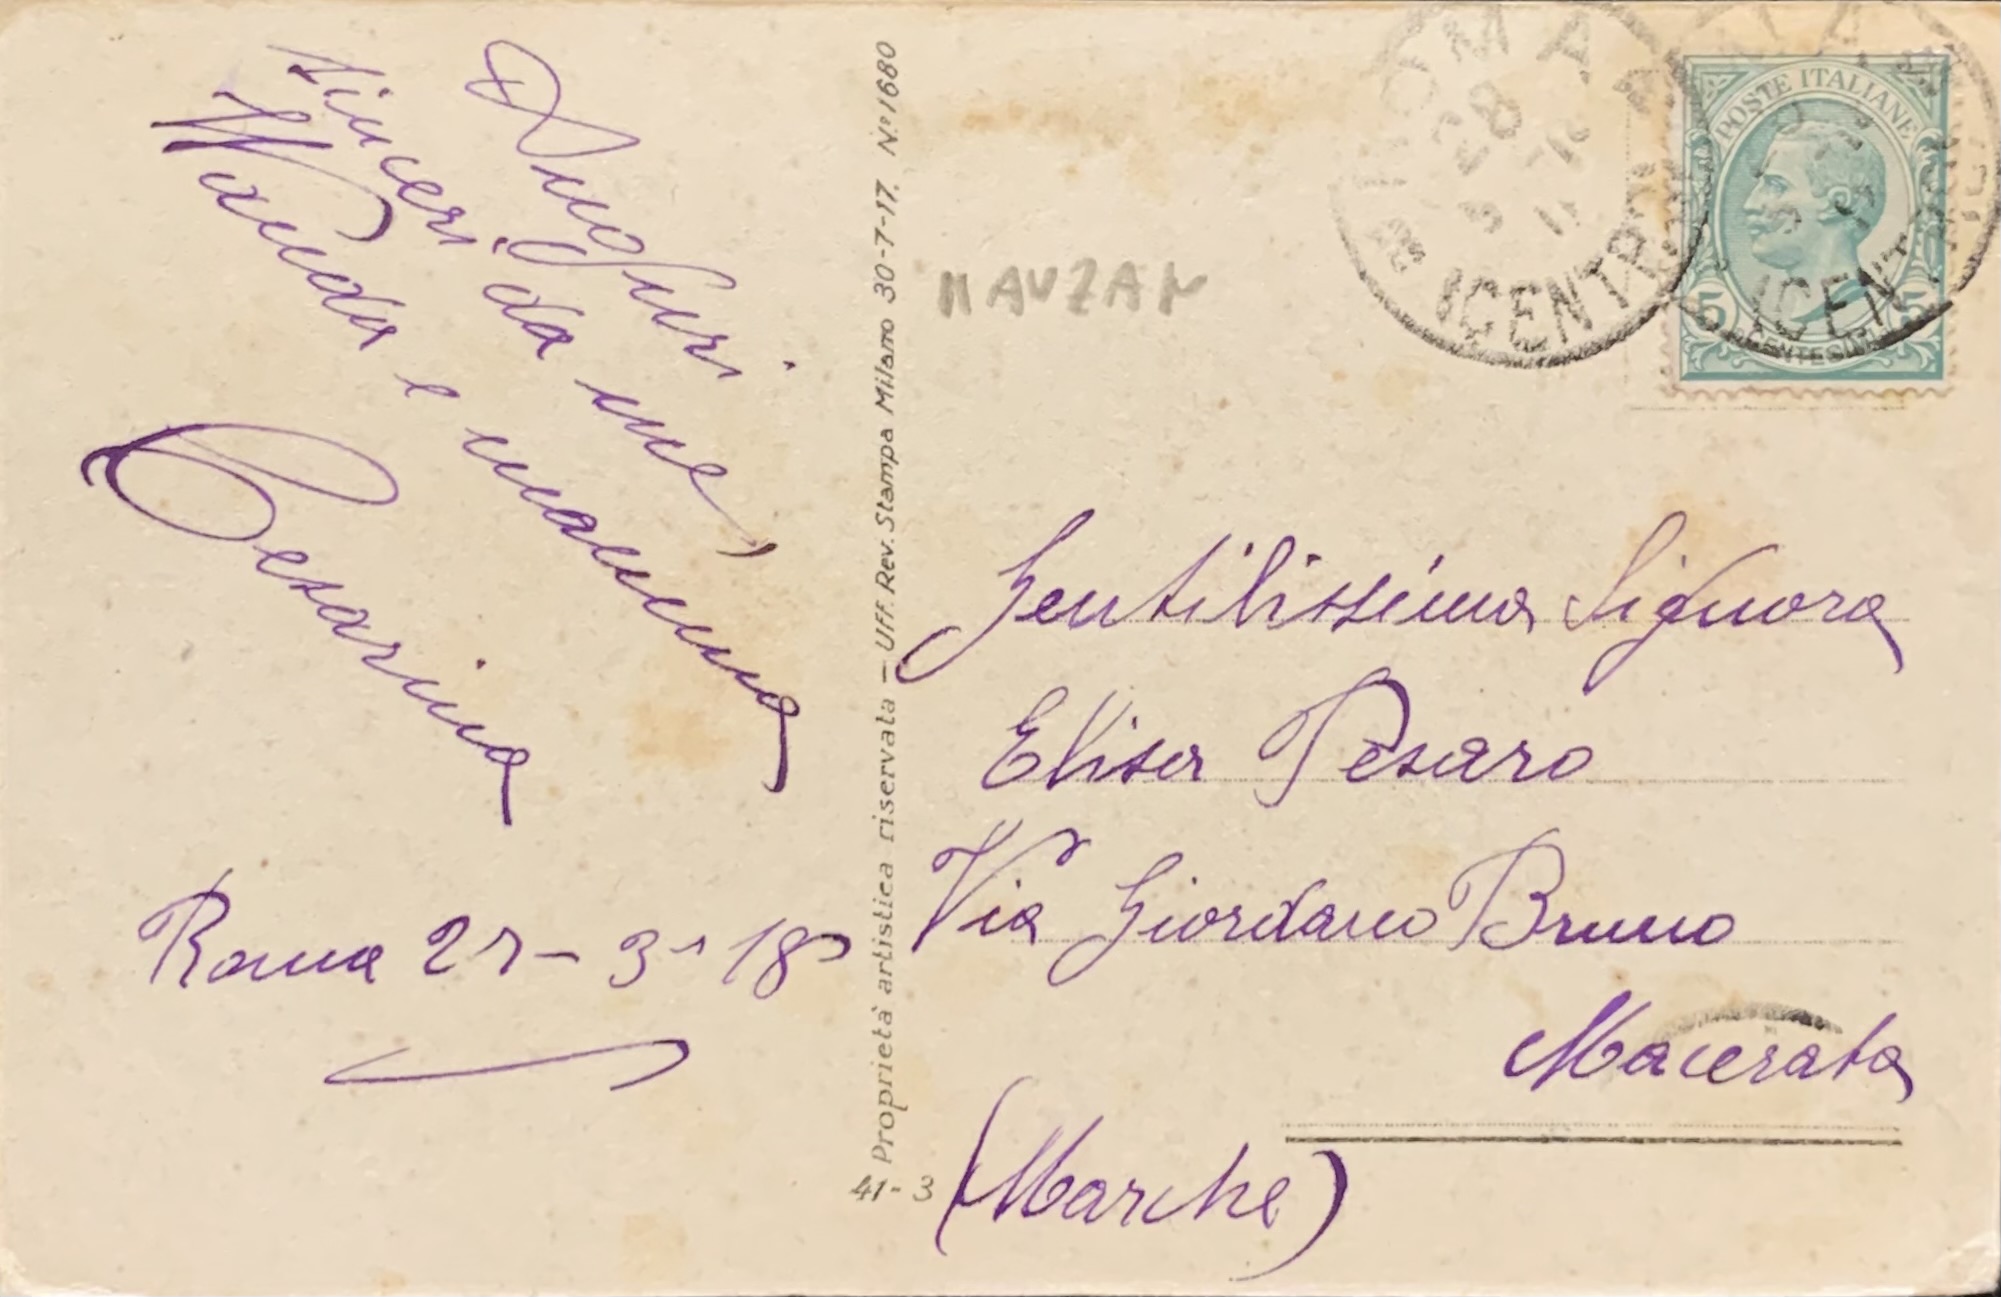 Auguri
sinceri da me
Wanda e mamma
Cesarina
Roma 27-3-18
Proprietà artistica riservata - Uff. Rev. Stampa Milano 30-7-17. N.° 1680
41-3
MAUZAN
ROMA
CENTRO
POSTE ITALIANE
5 5
CENTESIMI
Gentilissima Signora
Elisa Pesaro
Via Giordano Bruno
Macerata
(Marche)